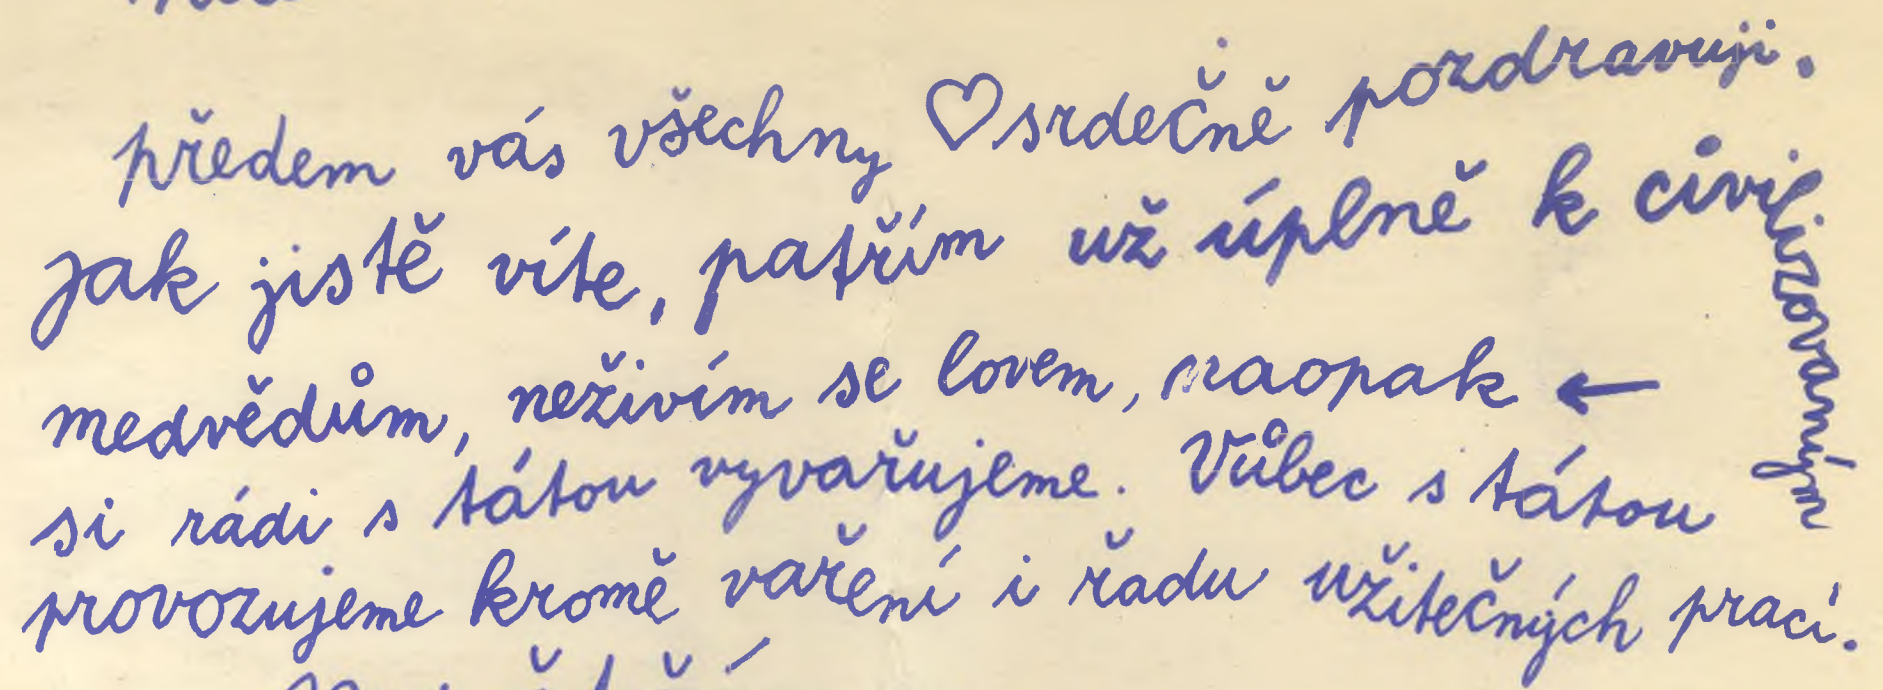 předem vás všechny ♡ srdečně pozdravuji.
Jak jistě víte, patřím už úplně k civilizovaným
medvědům, neživím se lovem, naopak ←
si rádi s tátou vyvařujeme. Vůbec s tátou
provozujeme kromě vaření i řadu užitečných prací.